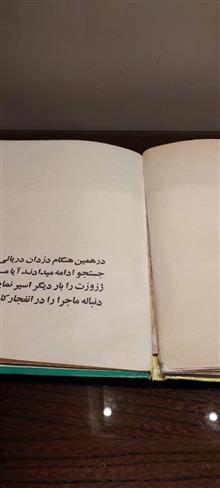 درهمین هنگام دزدان دریائی
جستجو ادامه میدادند آیا
ژوزت را بار دیگر اسیر
دنباله ماجرا را در انفجار